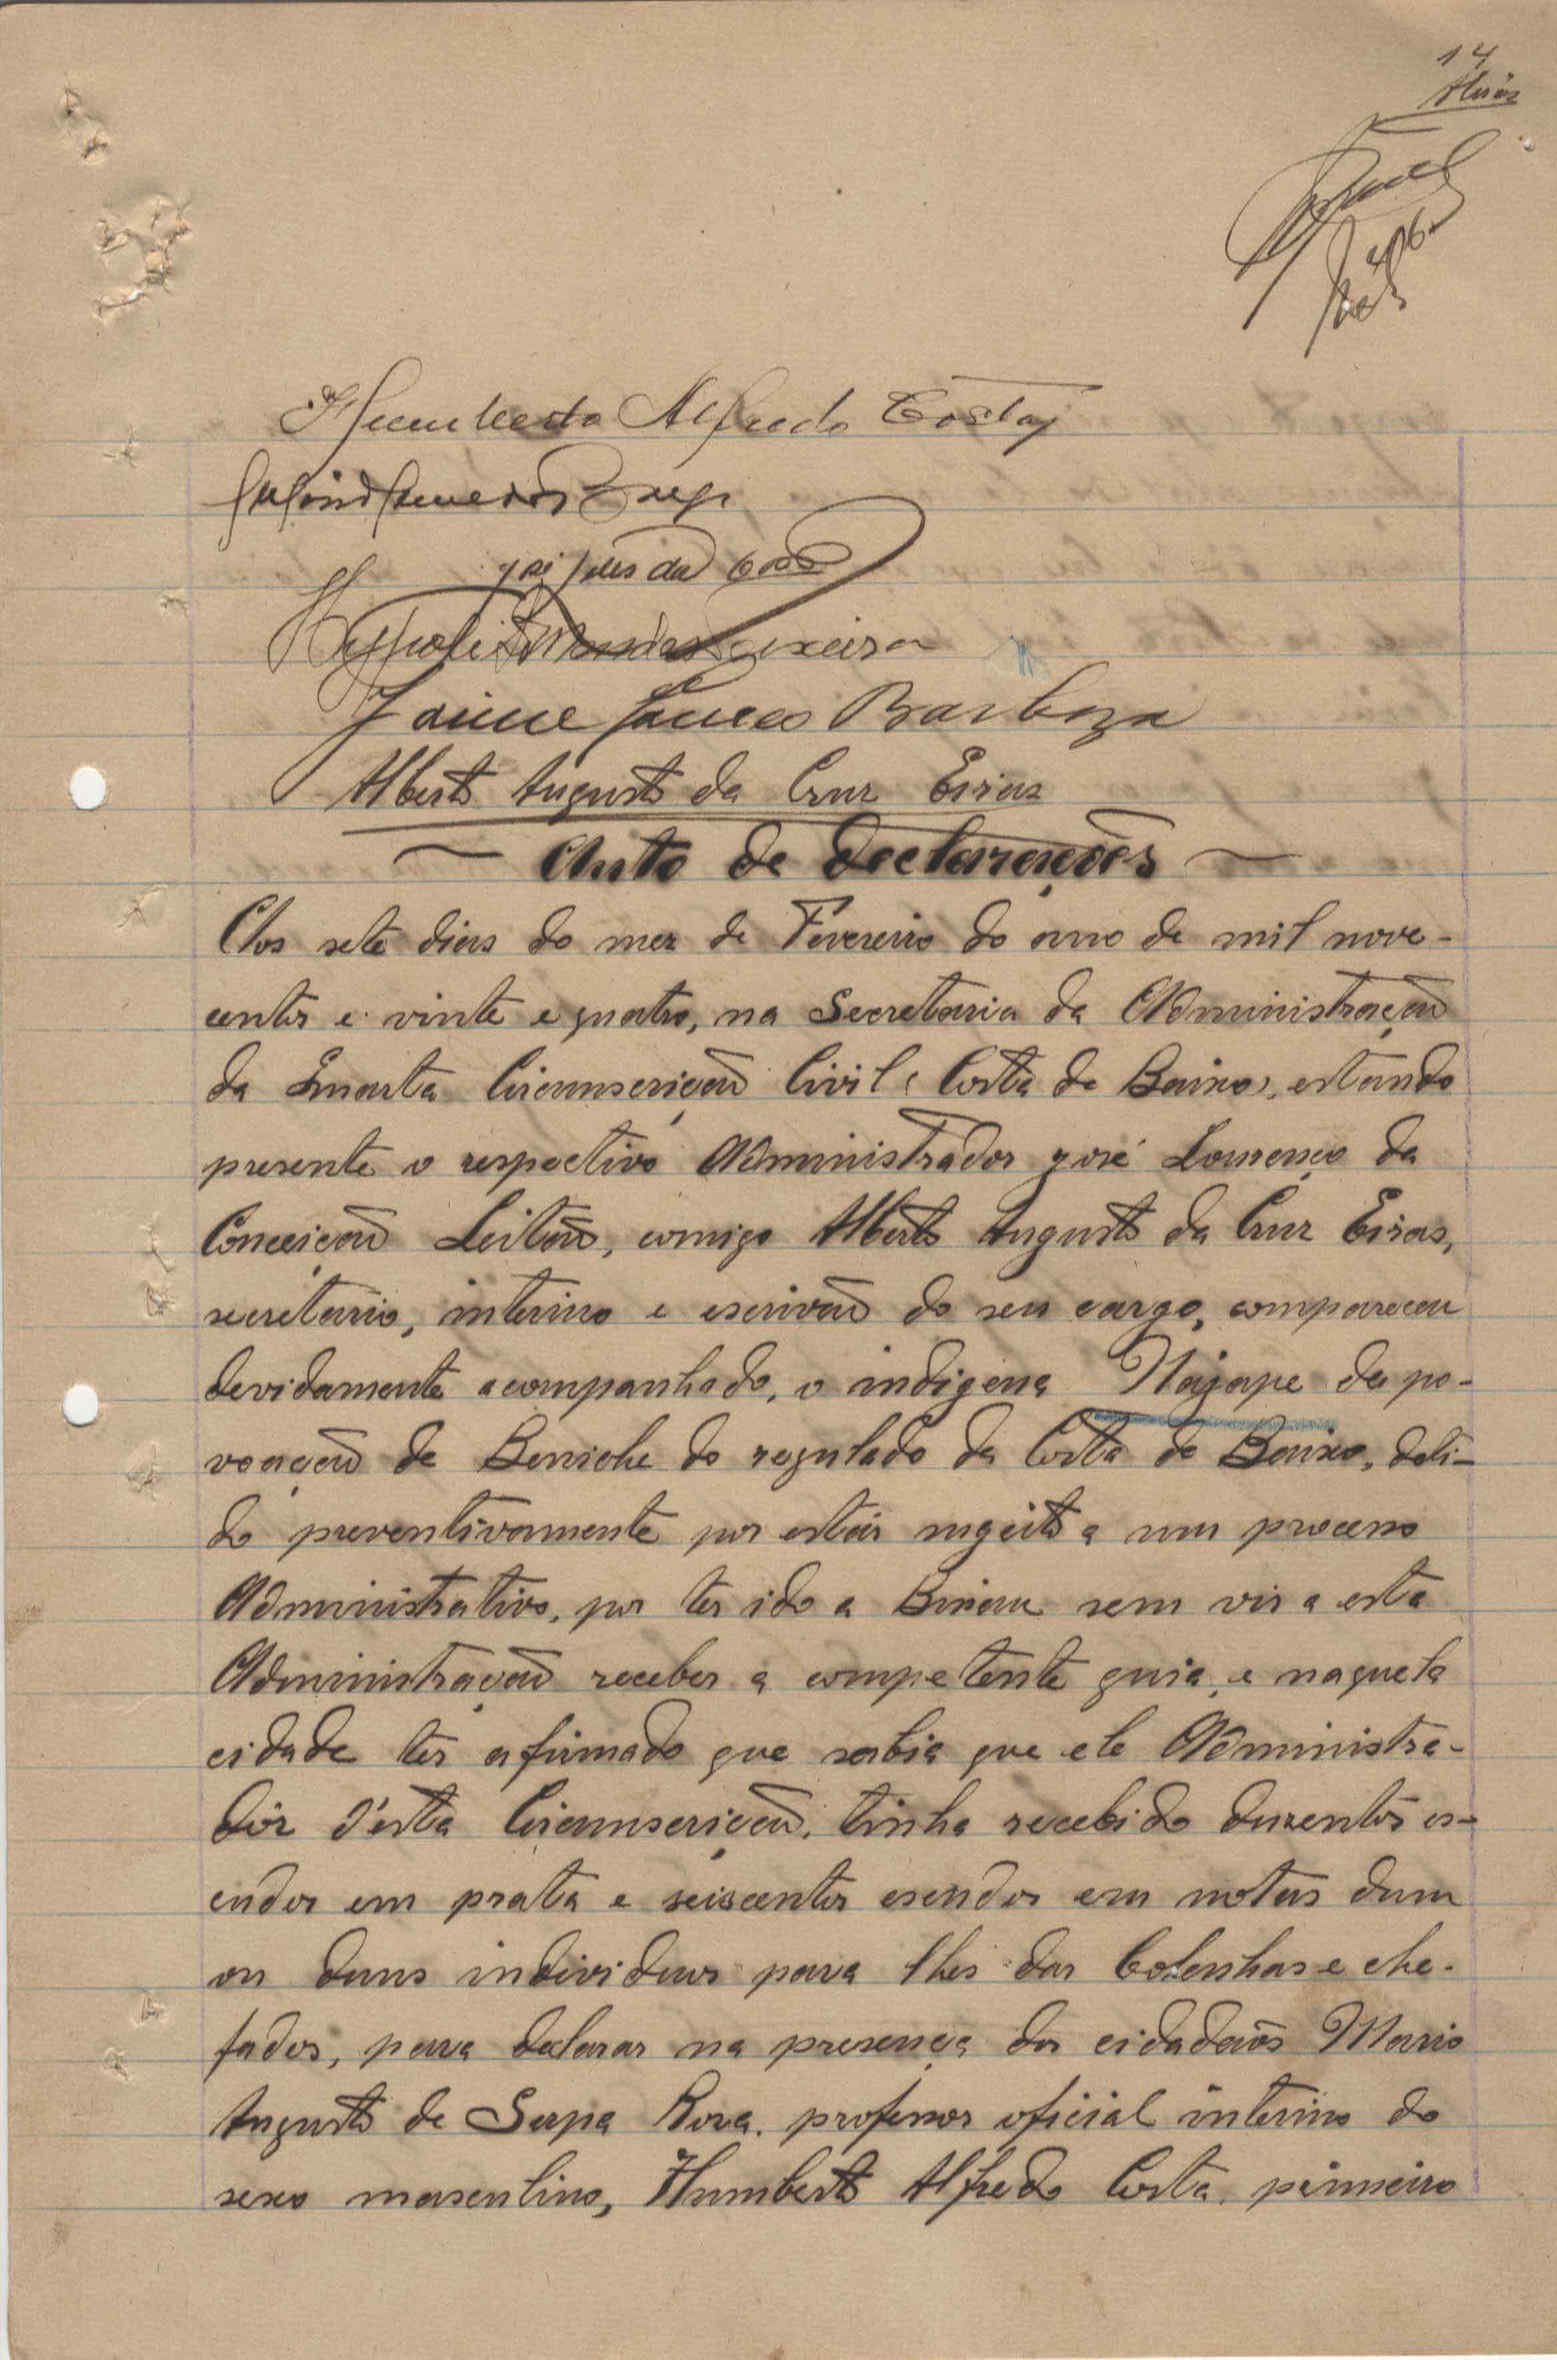 14
Eiras
Humberto Alfredo Costa
José da Costa
Hyppolito Mendes Teixeira
Jaime Barboza
Alberto Augusto da Cruz Eiras
~ Auto de declarações ~
Aos sete dias do mez de Fevereiro do ano de mil nove-
centos e vinte e quatro, na Secretaria da Administração
da Quarta Circunscrição Civil (Costa de Baixo), estando
presente o respectivo Administrador José Lourenço da
Conceição Leitão, comigo Alberto Augusto da Cruz Eiras,
secretario, interino e escrivão do seu cargo, compareceu
devidamente acompanhado, o indigena Najape da po-
voação de Beniche do regulado da Costa de Baixo, deti-
do preventivamente por estár sugeito a um processo
Administrativo, por ter ido a Bissau sem vir a esta
Administração receber a competente guia, e naquela
cidade ter afirmado que sabia que ele Administra-
dôr d'esta Circunscrição, tinha recebido duzentos es-
cudos em prata e seiscentos escudos em notas dum
ou duns individuos para lhes dar Colonhas e che-
fados, para declarar na presença dos cidadãos Mario
Augusto de Serpa Rosa, professor oficial interino do
sexo masculino, Humberto Alfredo Costa, primeiro